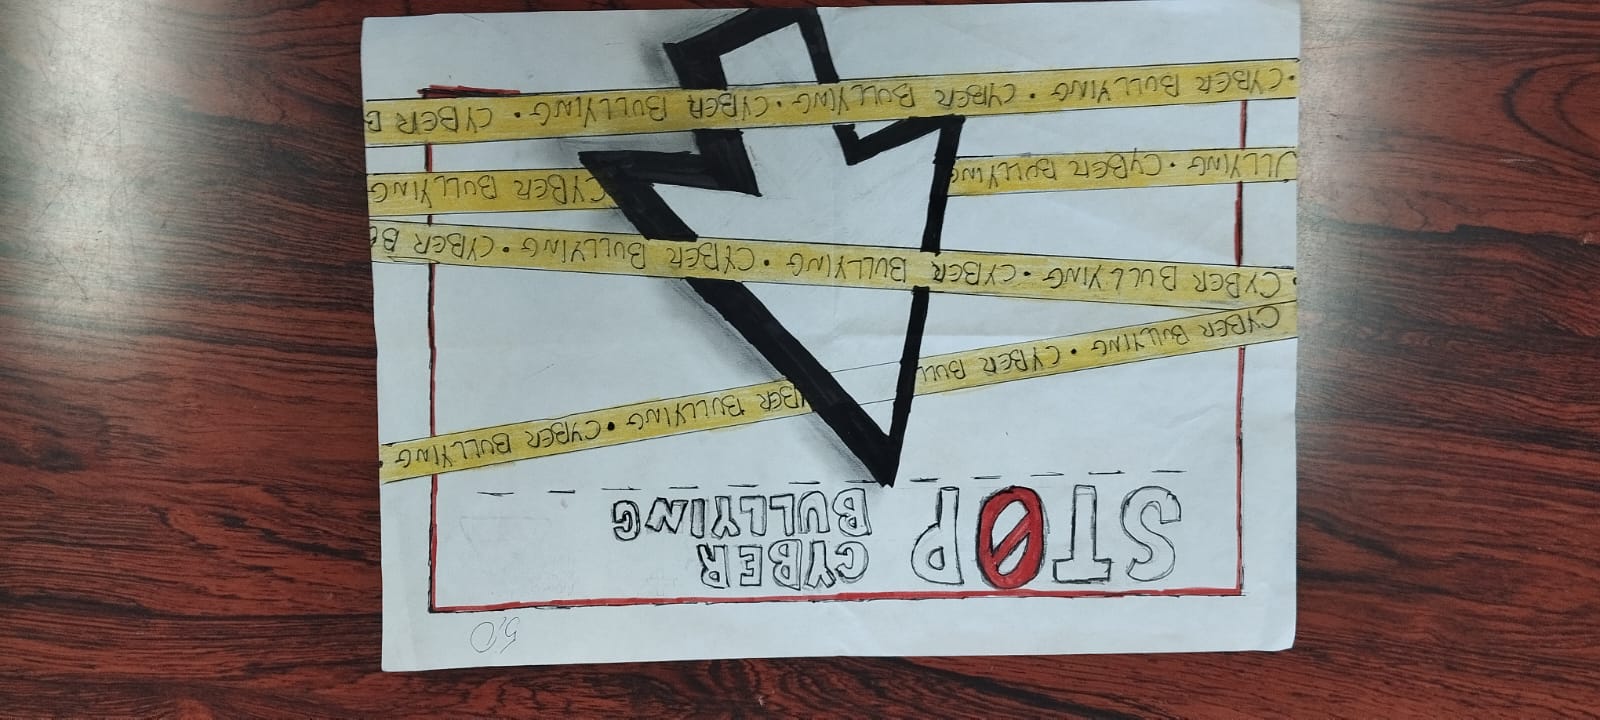 5,0
STOP CYBER
BULLYING
CYBER BULLYING • CYBER BULL YBER BULLYING • CYBER BULLYING •
• CYBER BULLYING • CYBER BULLYING • CYBER BULLYING • CYBER B
ULLYING • CYBER BULLYING CYBER BULLYING
• CYBER BULLYING • CYBER BULLYING • CYBER BULLYING • CYBER B